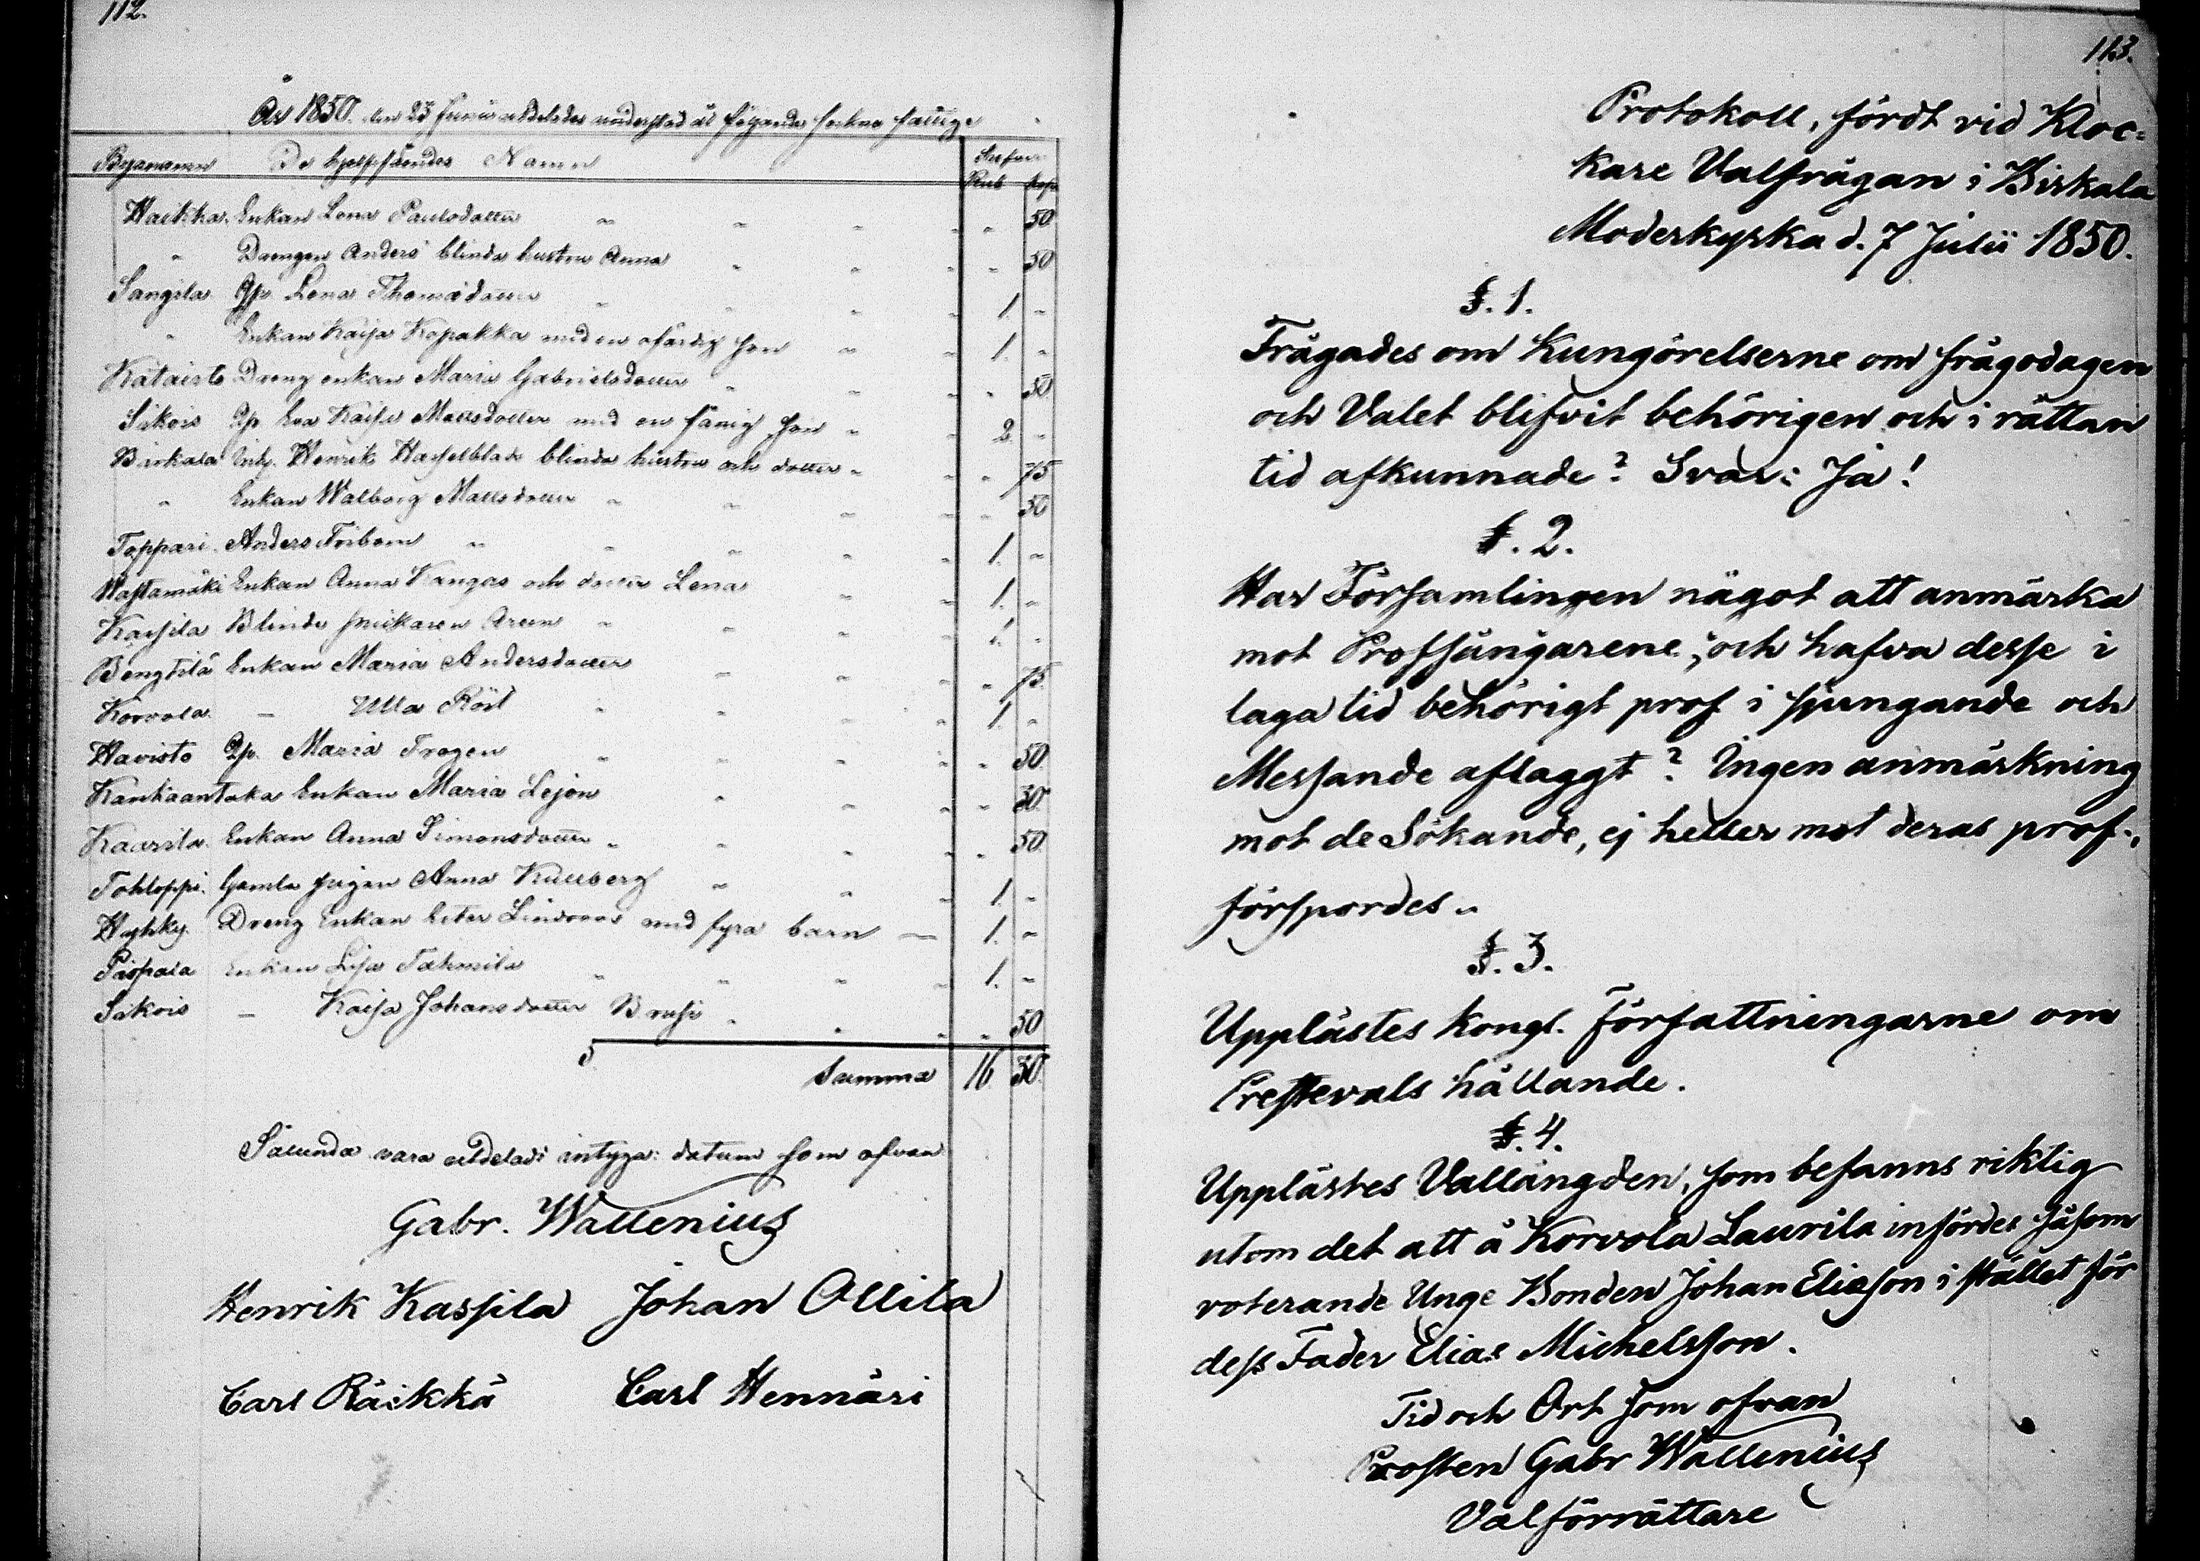 112.
År 1850. den 23 Junii utdelades understöd åt följande Sockne fattige
Byanamnen De hjelpfåendes Namn Silfver
Rub Kop
Haikka. Enkan Lena Paulsdotter " " " " 50
" Drengen Anders' blinda hustru Anna " " " " 50
Sangila Lena Thomædotter " " " 1. "
" Enkan Kaisa Kopakka med en ofärdig Son " " 1. "
Kataisto Dreng enkan Maria Gabrielsdotter " " " 50
Sikois Eva Kaisa Mattsdotter med en fånig Son " " 2 "
Birkala Inh. Henrik Hasselblads blinda hustru och dotter " " " 75
" Enkan Walborg Mattsdotter " " " " " 50
Toppari. Anders Forbom " " " " " 1. "
Hastamäki Enkan Anna Kangas och dotter Lena " " 1. "
Kassila Blinda Areen " " " " 1. "
Bengtilä Enkan Maria Andersdotter " " " " 75.
Korvola. — Ulla Röst " " " " 1. "
Havisto Maria Tragen " " " " " 50
Kankaantaka Enkan Maria Lejon " " " " 30
Kaarila. Enkan Anna Simonsdotter " " " " " 50.
Tohloppi. Gamla pigan Anna Kullberg " " " 1. "
Hyhky. Dreng Enkan med fyra barn — 1. "
Pispala Enkan Lisa " " " " 1. "
Sikois — Kaisa Johansdotter " " " " 50
Summa 16. 30.
Sålunda vara utdeladt intyga: datum som ofvan
Gabr. Wallenius
Henrik Kassila Johan Ollila
Carl Räikkä Carl Hennäri
113.
Protokoll, fördt vid Kloc=
kare Valfrågan i Birkala
Moderkyrka d. 7 Julii 1850.
§. 1.
Frågades om Kungörelserne om frågodagen
och Valet blifvit behörigen och i rättan
tid afkunnade? Svar: Ja!
§. 2.
Har Församlingen något att anmärka
mot Profsångarene, och hafva desse i
laga tid behörigt prof i sjungande och
Messande aflaggt? Ingen anmärkning
mot de Sökande, ej heller mot deras prof.,
förspordes.
§. 3.
Upplästes kongl. Författningarne om
Prestevals hållande.
§. 4.
Upplästes Vallängden, som befanns riktig
utom det att å Korvola Laurila infördes såsom
voterande Unge Bonden Johan Eliæson i stället för
dess Fader Elias Michelsson.
Tid och Ort som ofvan
Prosten Gabr Wallenius
Valförrättare